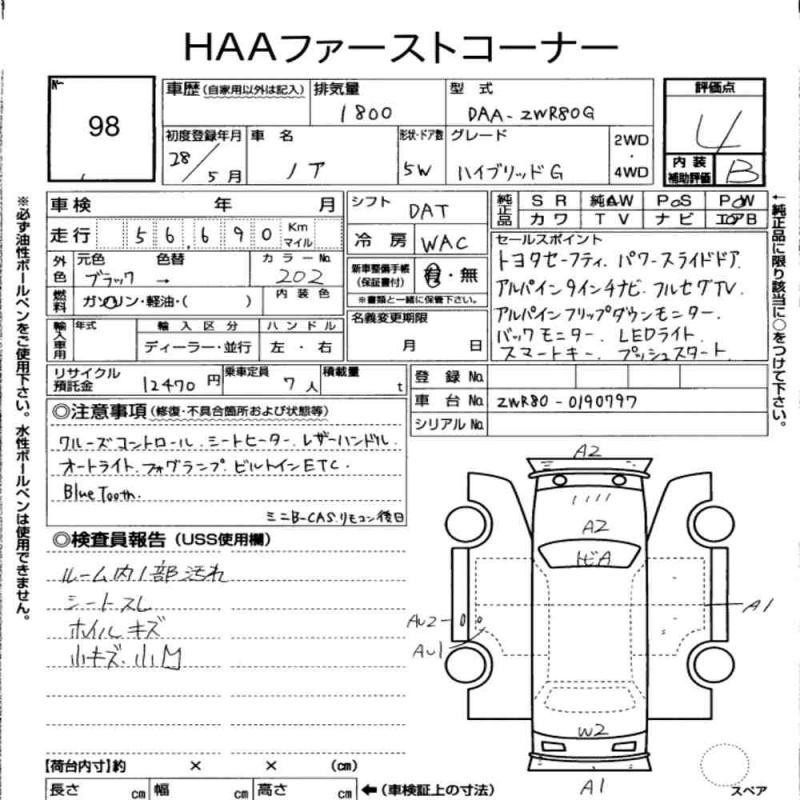 HAAファーストコーナー
No.
98
車歴 (自家用以外は記入)
排気量
1800
型式
DAA-ZWR80G
評価点
4
初度登録年月
28/5月
車名
ノア
形状・ドア数
5W
グレード
ハイブリッドG
2WD
・
4WD
内装
補助評価
B
車検 年 月
走行 56,690 Km
マイル
シフト
DAT
冷房
WAC
純正品
SR 純AW PoS PoW
カワ TV ナビ エアB
外色
元色 色替 カラーNo.
ブラック → 202
新車整備手帳
(保証書付)
有・無
※書類と一緒に保管下さい。
セールスポイント
トヨタセーフティ. パワースライドドア.
アルパイン9インチナビ. フルセグTV.
アルパインフリップダウンモニター.
バックモニター. LEDライト.
スマートキー. プッシュスタート.
燃料
ガソリン・軽油・( )
内装色
名義変更期限
月 日
輸入車用
年式
輸入区分
ハンドル
ディーラー・並行
左・右
リサイクル
預託金
12470円
乗車定員
7人
積載量
t
登録No.
車台No.
ZWR80-0190797
シリアルNo.
◎注意事項 (修復・不具合箇所および状態等)
クルーズコントロール. シートヒーター. レザーハンドル.
オートライト. フォグランプ. ビルトインETC.
BlueTooth.
ミニB-CAS. リモコン後日
◎検査員報告 (USS使用欄)
ルーム内1部汚れ
シートスレ
ホイルキズ
小キズ. 小凹
A2
A2
トビA
AU2
AU1
A1
W2
A1
スペア
【荷台内寸】約 × × (cm)
長さ cm 幅 cm 高さ cm
←(車検証上の寸法)
※必ず油性ボールペンをご使用下さい。水性ボールペンは使用できません。
←純正品に限り該当に○をつけて下さい。